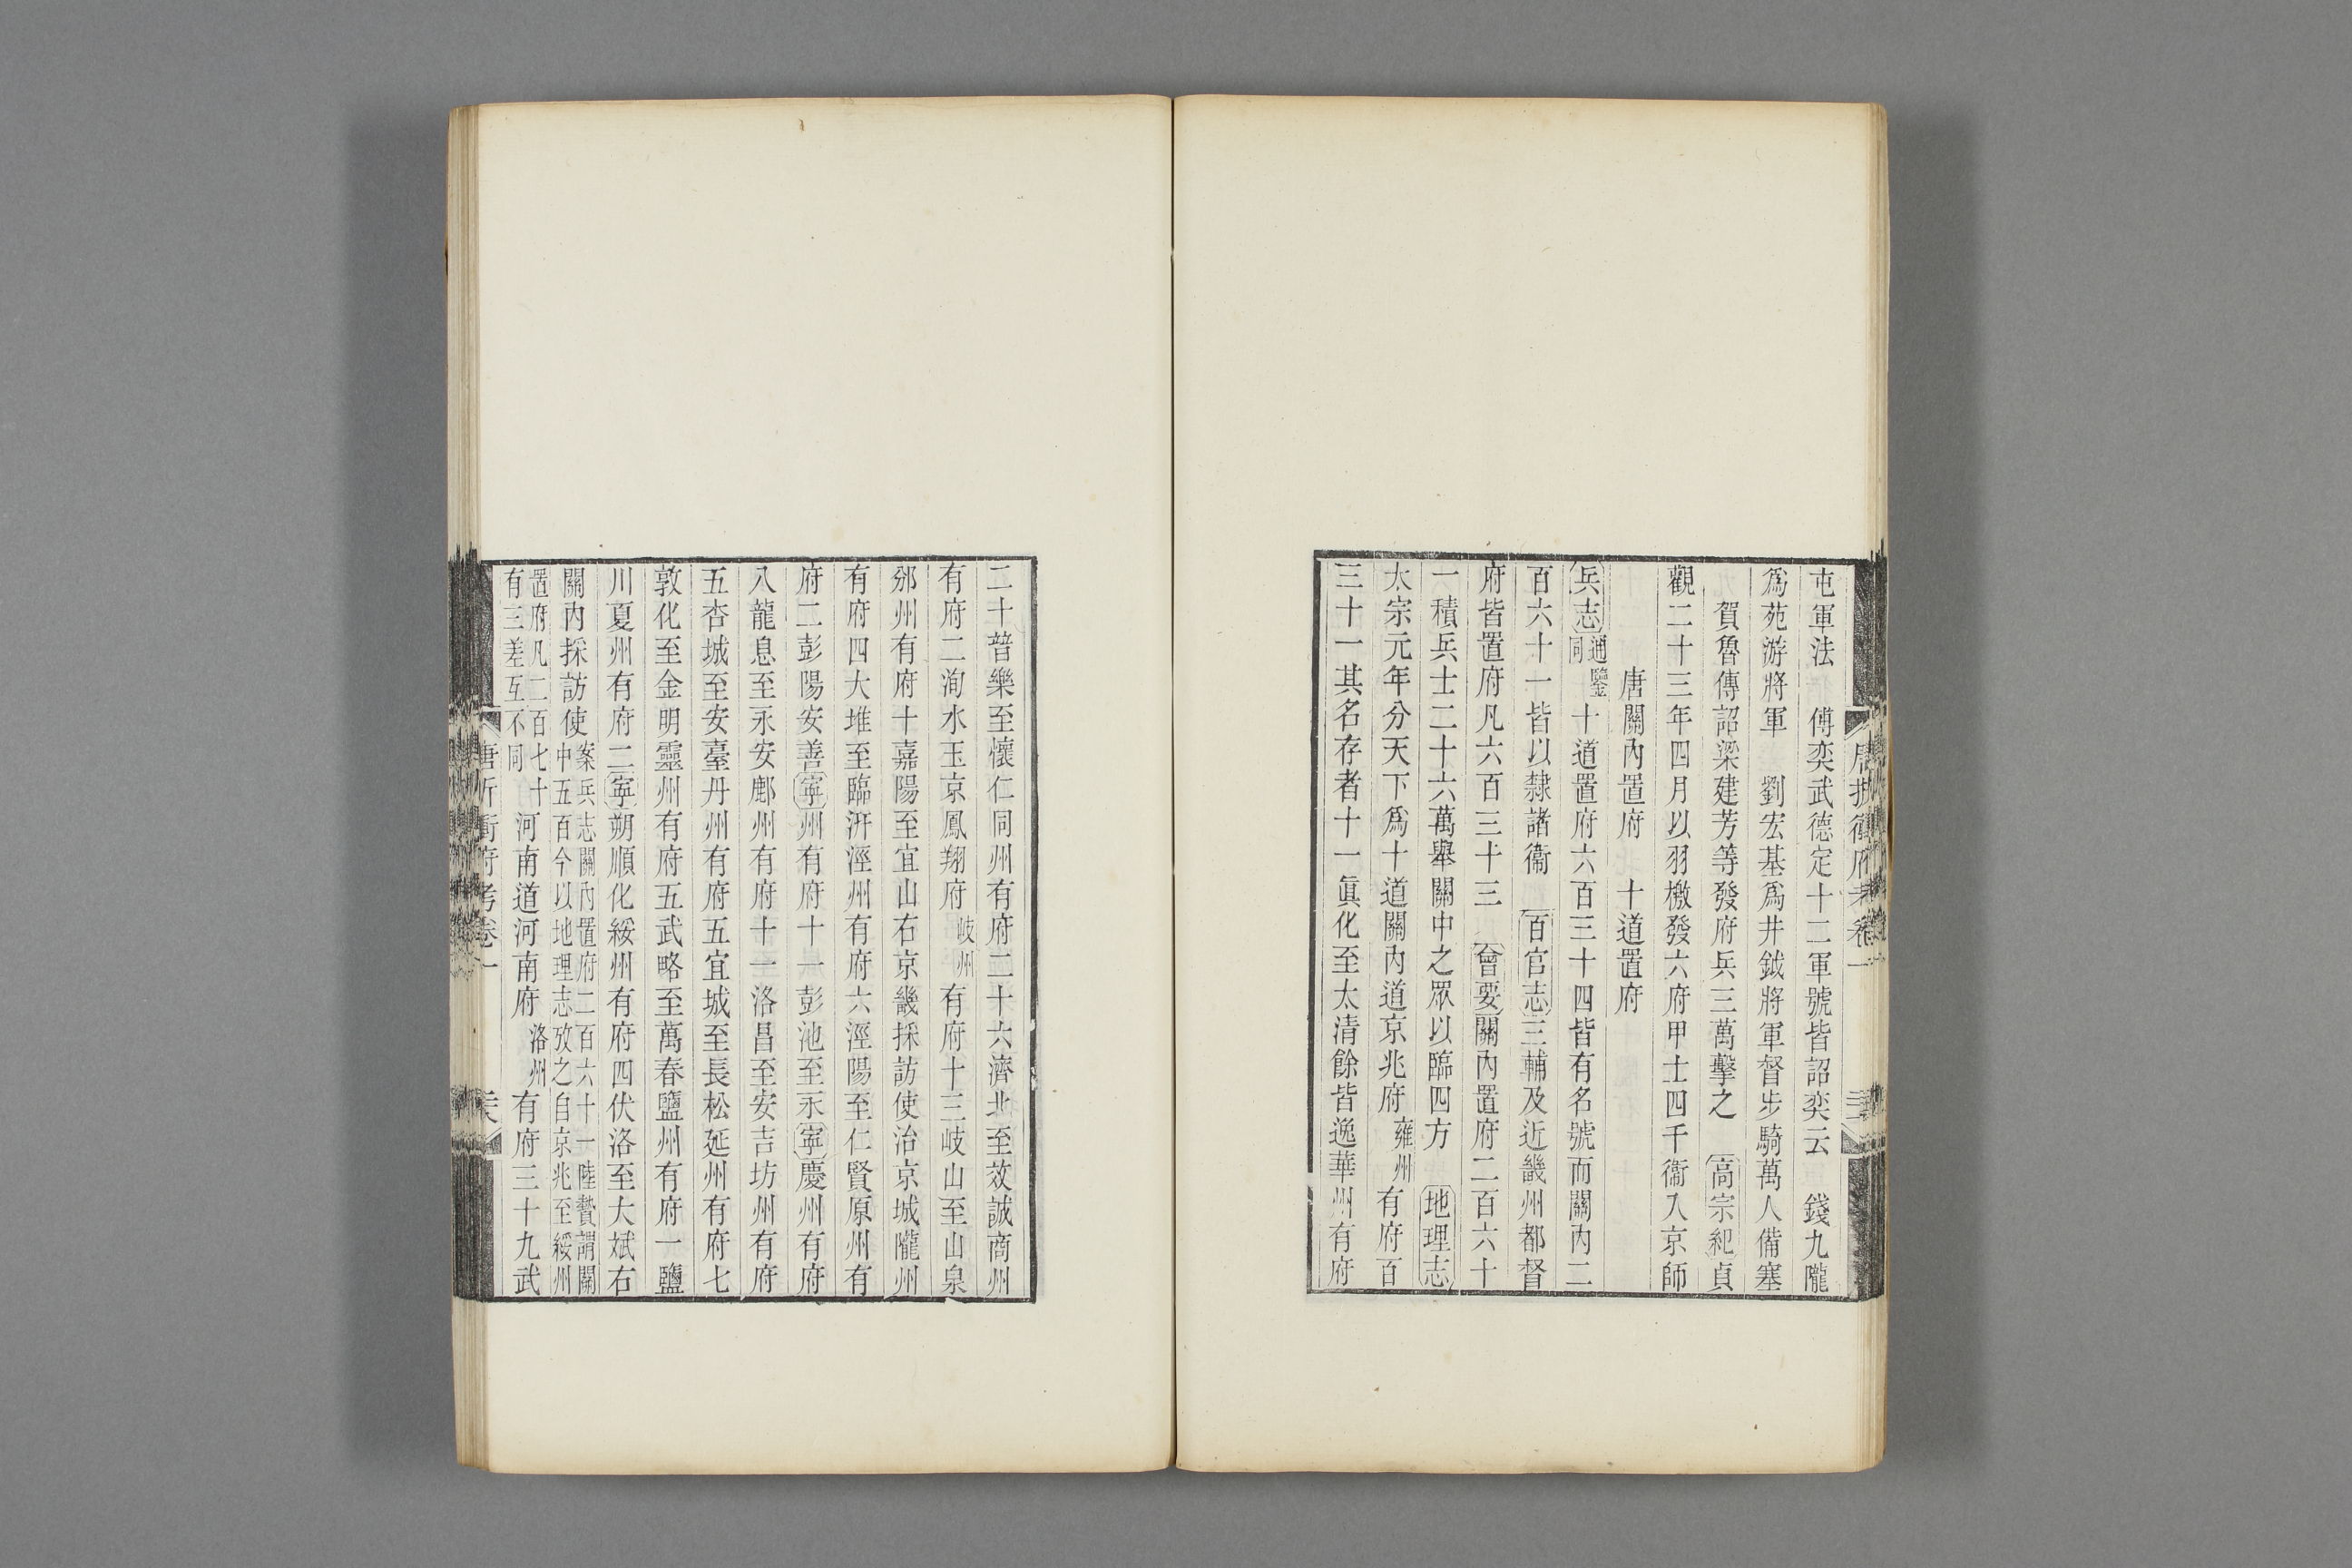 屯軍法　傅奕武德定十二軍號皆詔奕云　錢九隴
爲苑游將軍　劉宏基爲井鉞將軍督步騎萬人備塞
賀魯傳詔梁建芳等發府兵三萬擊之　高宗紀貞
觀二十三年四月以羽檄發六府甲士四千衞入京師
唐關內置府　十道置府
兵志通鑑同十道置府六百三十四皆有名號而關內二
百六十一皆以隸諸衞　百官志三輔及近畿州都督
府皆置府凡六百三十三　會要關內置府二百六十
一積兵士二十六萬舉關中之眾以臨四方　地理志
太宗元年分天下爲十道關內道京兆府雍州有府百
三十一其名存者十一眞化至太清餘皆逸華州有府
二十普樂至懷仁同州有府二十六濟北至效誠商州
有府二洵水玉京鳳翔府岐州有府十三岐山至山泉
邠州有府十嘉陽至宜山右京畿採訪使治京城隴州
有府四大堆至臨汧涇州有府六涇陽至仁賢原州有
府二彭陽安善寧州有府十一彭池至永寧慶州有府
八龍息至永安鄜州有府十一洛昌至安吉坊州有府
五杏城至安臺丹州有府五宜城至長松延州有府七
敦化至金明靈州有府五武略至萬春鹽州有府一鹽
川夏州有府二寧朔順化綏州有府四伏洛至大斌右
關內採訪使案兵志關內置府二百六十一陸贄謂關中五百今以地理志攷之自京兆至綏州
置府凡二百七十有三差互不同河南道河南府洛州有府三十九武
唐折衝府考卷一